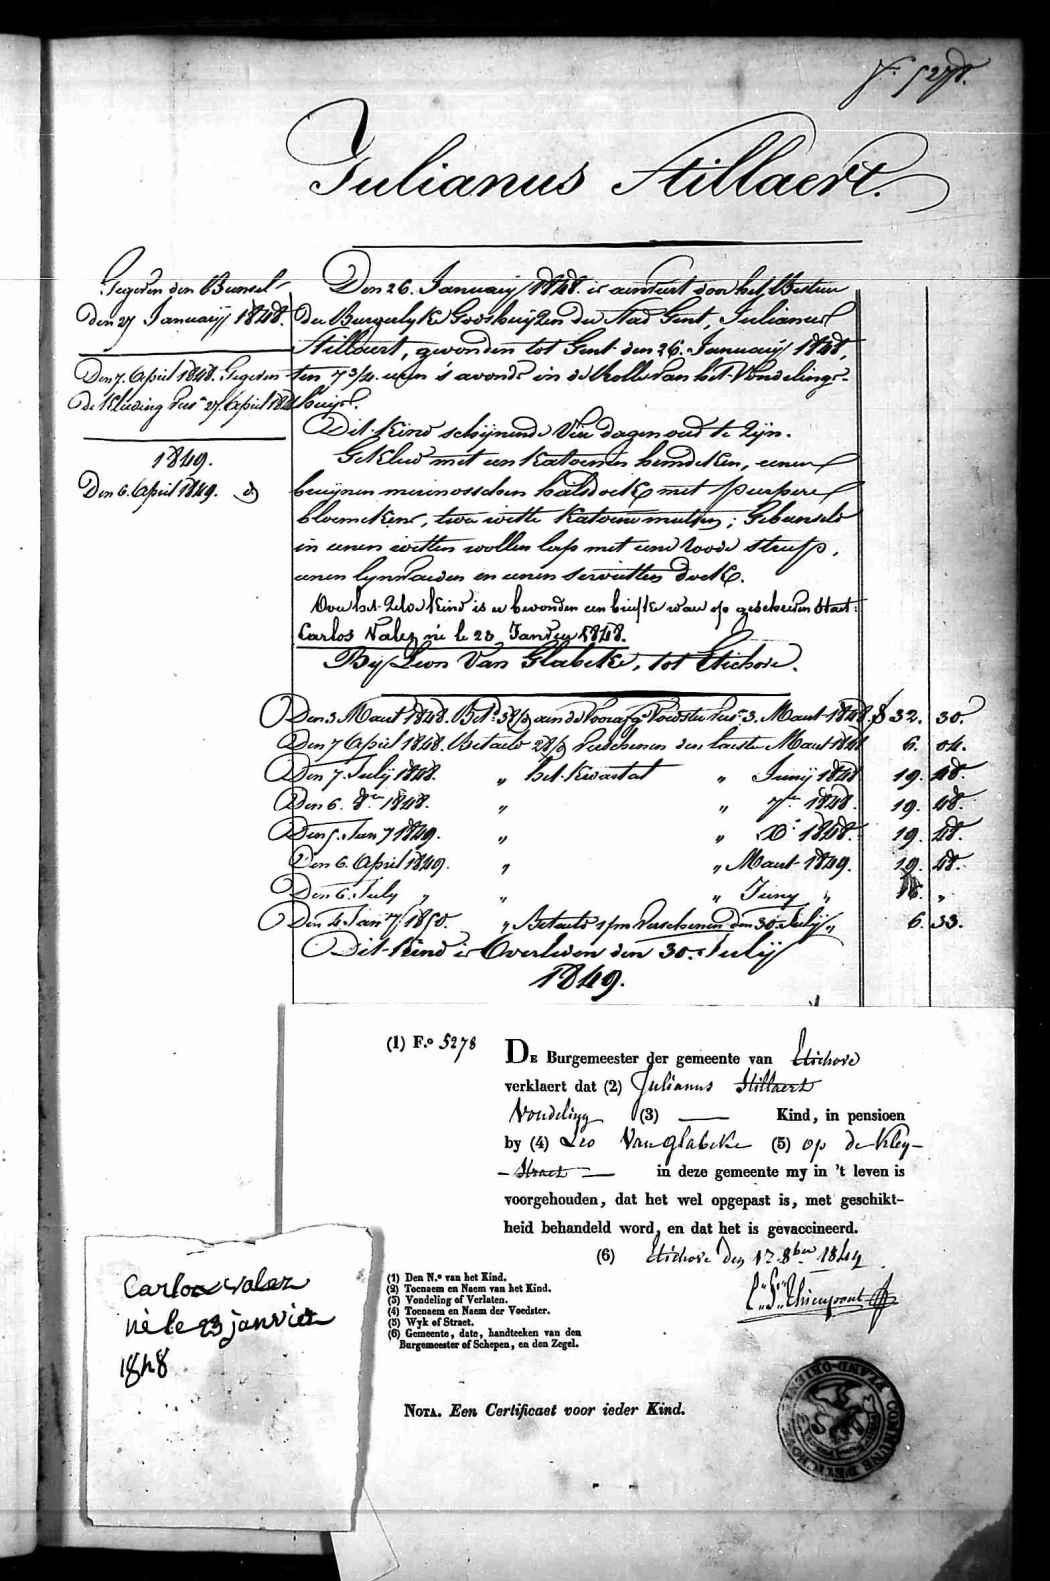 F.º 5278.
Julianus Stillaert.
Gegeven den Bunsel
den 27 Januarij 1848.
Den 7. April 1848. Gegeven
de Kleeding
1849.
Den 6. April 1849.
Den 26. Januarij 1848. is aenveirt door het Bestuer
der Burgerlyke Godshuyzen der Stad Gent, Julianus
Stillaert, gevonden tot Gent den 26. Januarij 1848,
ten 7 3/4 uren s'avonds in de Rolle van het Vondelings-
huys.
Dit kind schynende vier dagen oud te zyn.
Gekleed met een katoenen hemdeken, eenen
bruynen merinosschen halsdoek met purpere
bloemekens, twee witte katoene mutsen; Gebunseld
in eenen witten wollen lap met eene roode streep,
eenen lynwaeden en eenen servietten doek.
Over het zelve kind is er bevonden een briefke waer op geschreven staet:
Carlos Valez né le 23 Janvier 1848.
By Leon Van Glabeke, tot Etichove.
Den 3 Maert 1848. 3. Maert 1848 32. 30.
Den 7 April 1848. Betaeld verschenen den laetste Maert 1848 6. 04.
Den 7. Julij 1848. " het kwartael " Junij 1848 19. 48.
Den 6. 8er 1848. " " 7er 1848. 19. 48.
Den 5. Jany 1849. " " Xr 1848. 19. 48.
Den 6. April 1849. " " Maert 1849. 19. 48.
Den 6. July " " " Juny " 16. "
Den 4. Jany 1850. " Betaeld 1/m verschenen den 30 Julij " 6. 33.
Dit kind is Overleden den 30. Julij
1849.
(1) F.º 5278
De Burgemeester der gemeente van Etichove
verklaert dat (2) Julianus Stillaert
Vondeling (3) — Kind, in pensioen
by (4) Leo Van glabeke (5) op de Kley-
- Straet — in deze gemeente my in 't leven is
voorgehouden, dat het wel opgepast is, met geschikt-
heid behandeld word, en dat het is gevaccineerd.
(6) Etichove den 1r 8ber 1849
(1) Den N.º van het Kind.
(2) Toenaem en Naem van het Kind.
(3) Vondeling of Verlaten.
(4) Toenaem en Naem der Voedster.
(5) Wyk of Straet.
(6) Gemeente, date, handteeken van den
Burgemeester of Schepen, en den Zegel.
Nota. Een Certificaet voor ieder Kind.
Carlos valez
né le 23 janvier
1848